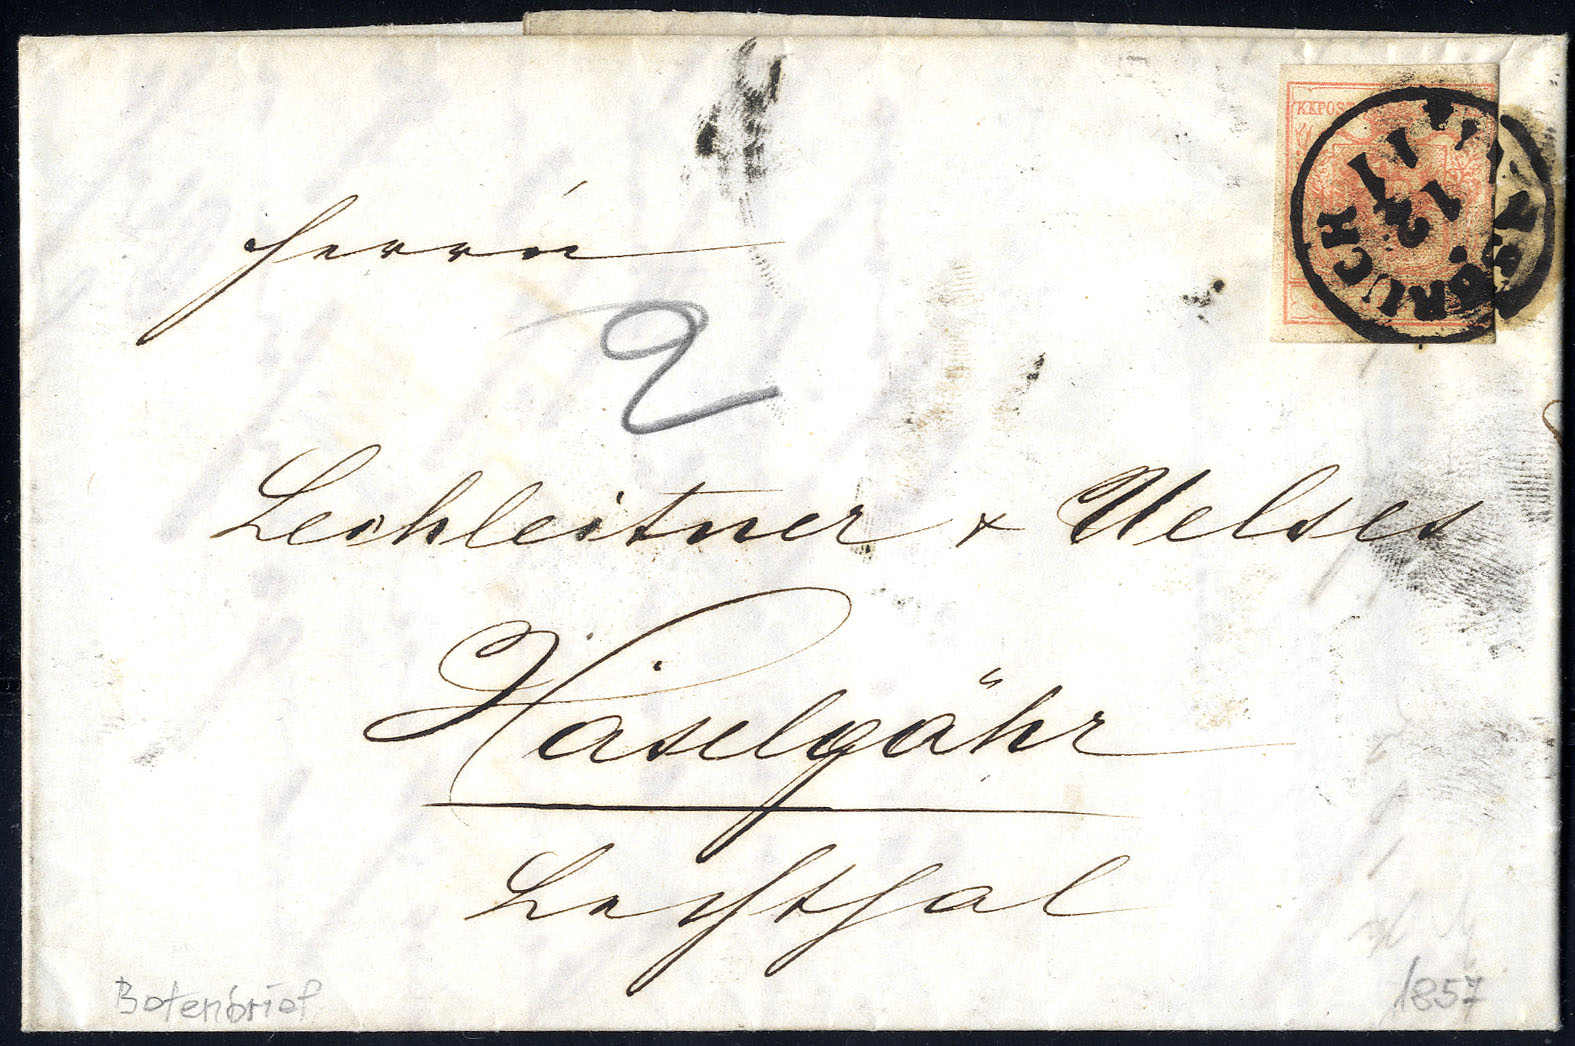 KKPOST
INNSBRUCK
12
11
Herrn
2
Lechleitner & Uelses
Häselgähr
Lechthal
Botenbrief
1857